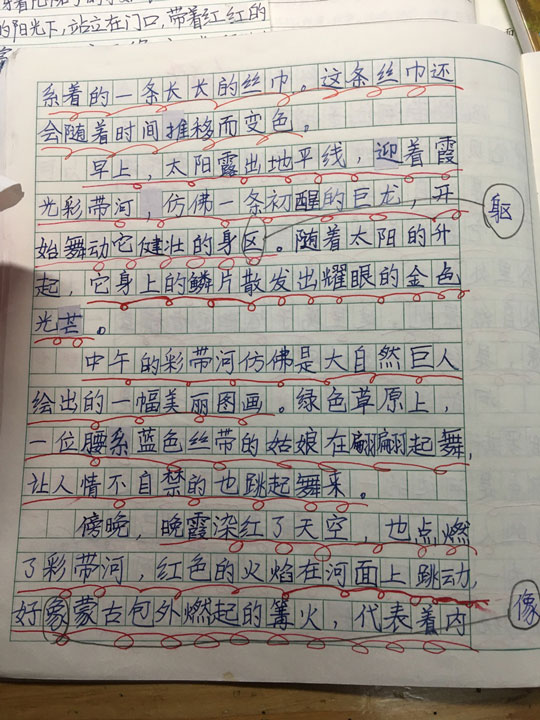 的阳光下，站立在门口，带着红红的
系着的一条长长的丝巾。这条丝巾还
会随着时间推移而变色。
早上，太阳露出地平线，迎着霞
光彩带河，仿佛一条初醒的巨龙，开
躯
始舞动它健壮的身区。随着太阳的升
起，它身上的鳞片散发出耀眼的金色
光芒。
中午的彩带河仿佛是大自然巨人
绘出的一幅美丽图画。绿色草原上，
一位腰系蓝色丝带的姑娘在翩翩起舞，
让人情不自禁的也跳起舞来。
傍晚，晚霞染红了天空，也点燃
了彩带河，红色的火焰在河面上跳动，
好象蒙古包外燃起的篝火，代表着内
像